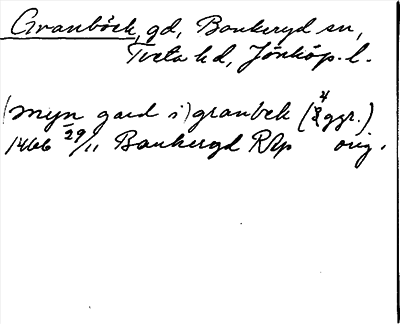 Granbäck, gd, Bankeryd sn,
Tveta hd, Jönköp. l.
(myn gard i) granbek (4 ggr.)
1466 29/11 Bankeryd RAp orig.